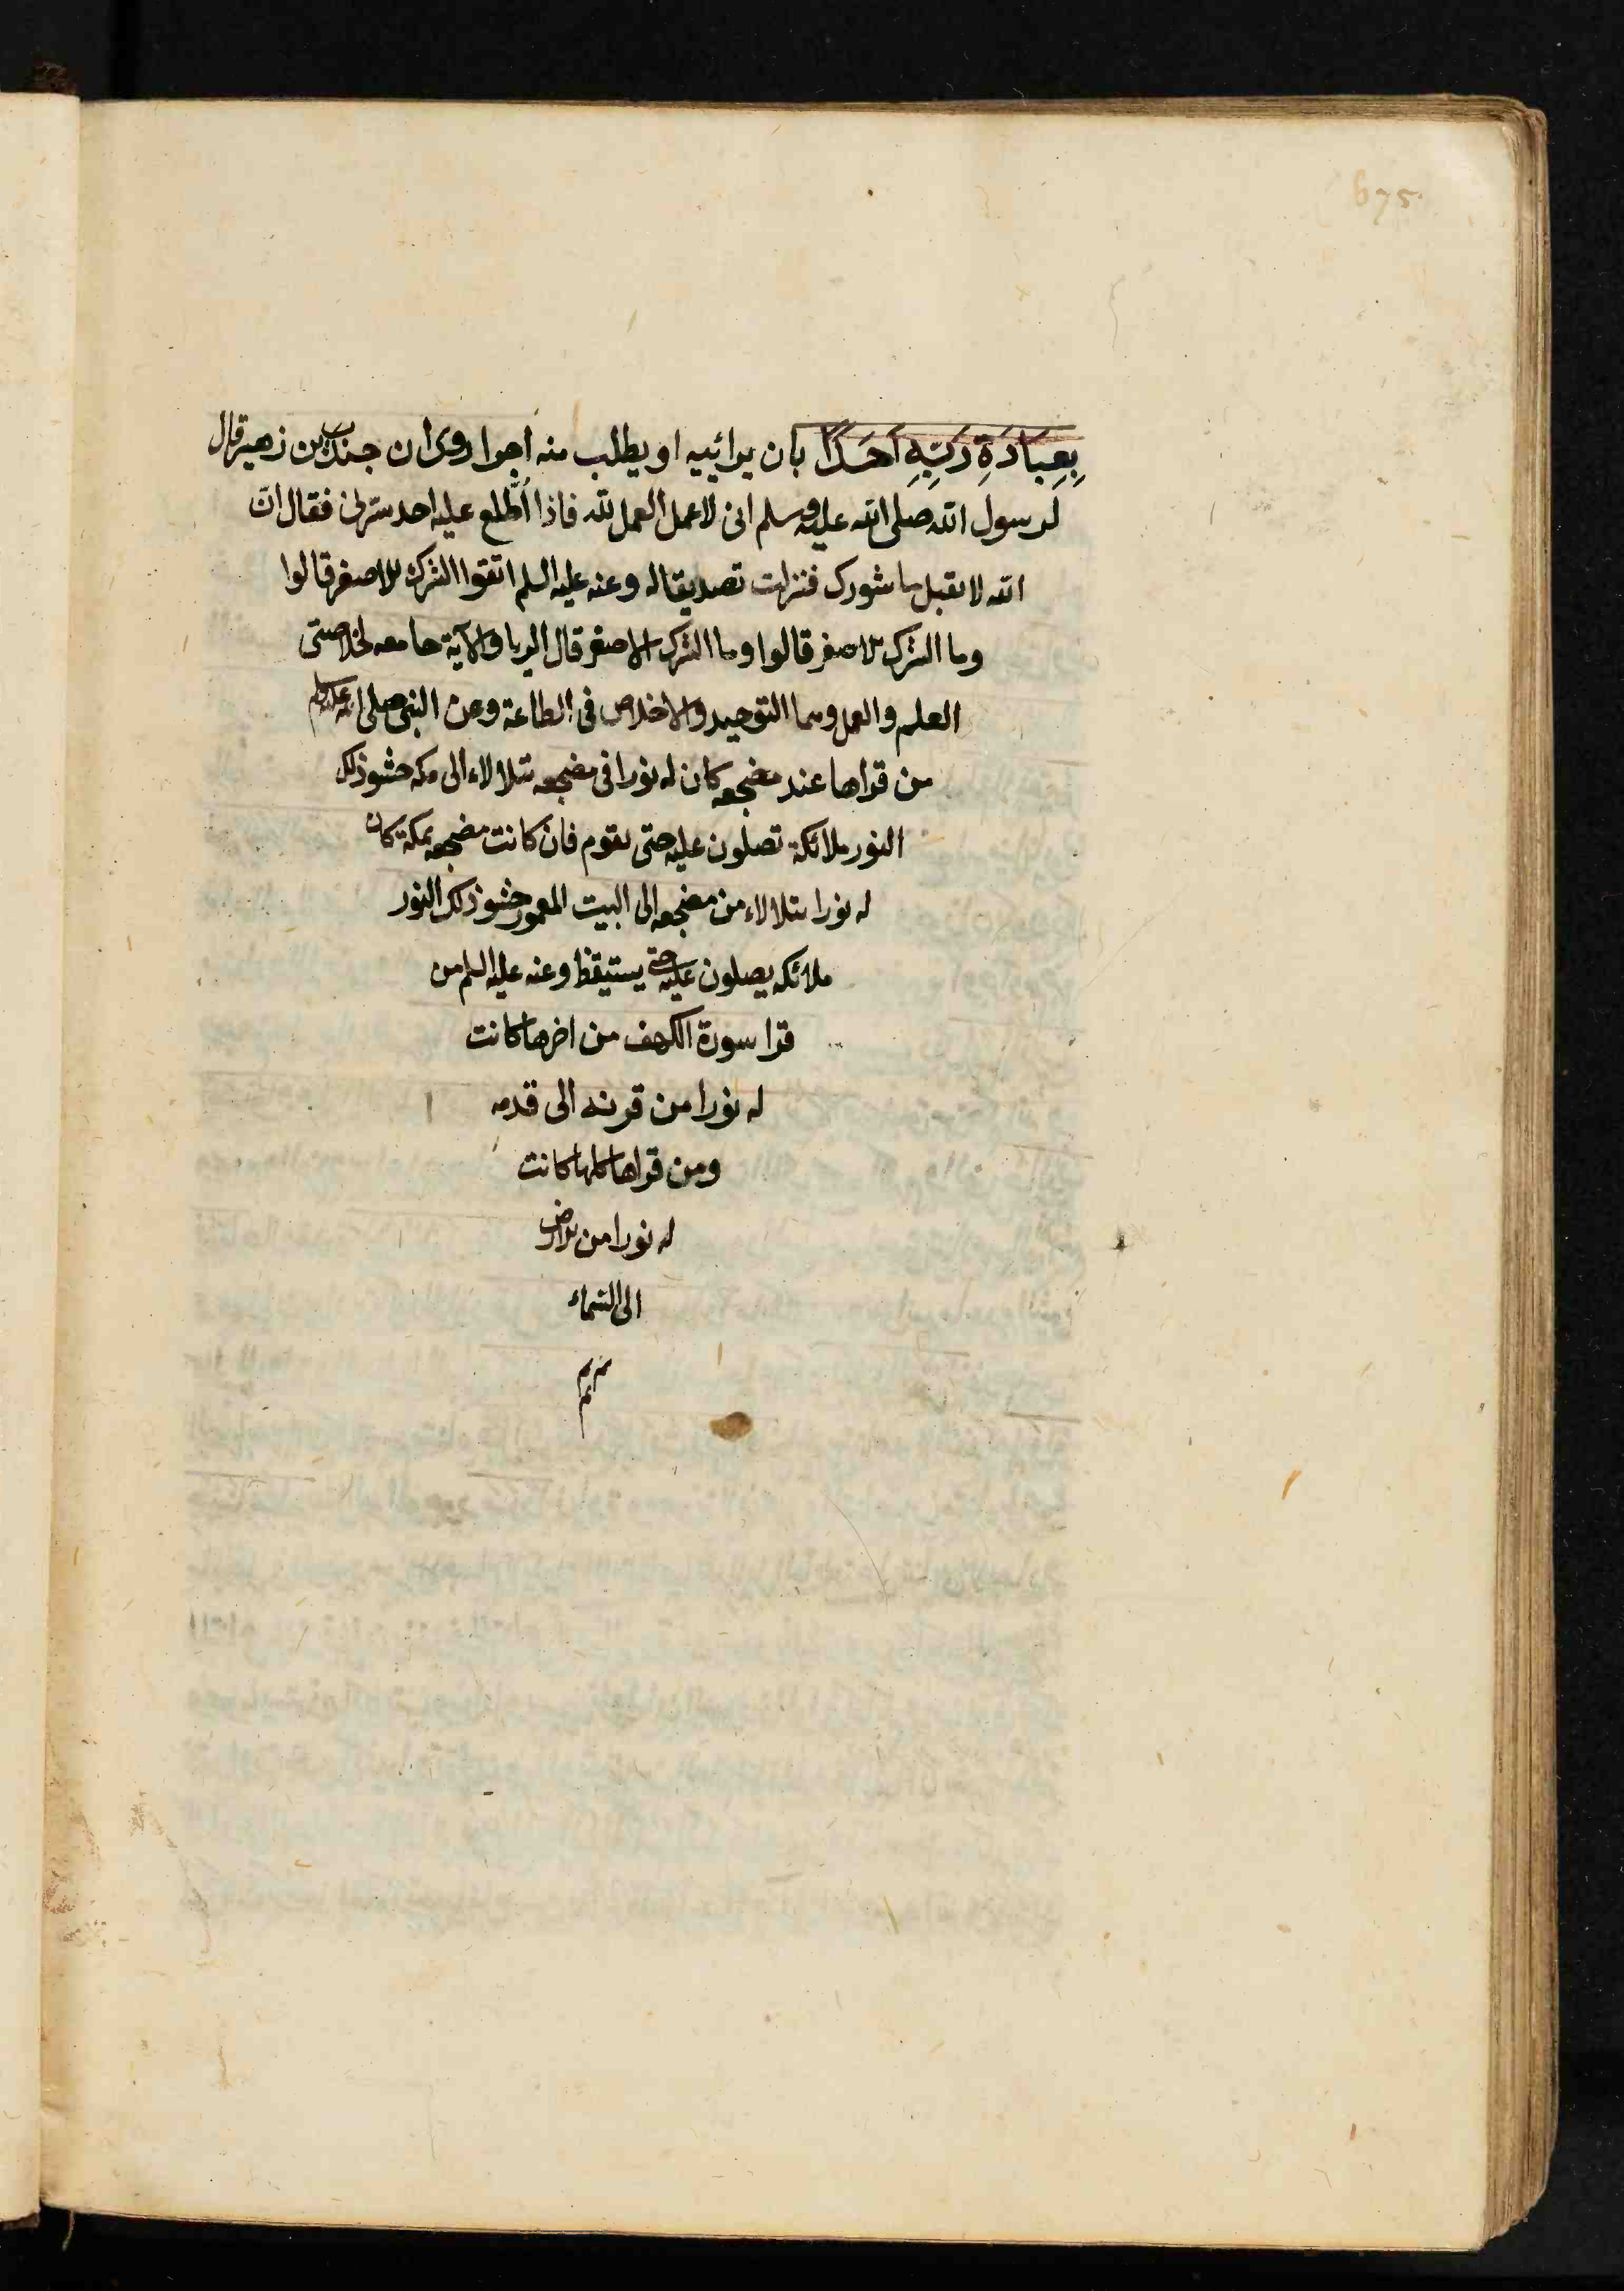 675
بِعِبَادَةِ رَبِّهِ اَحَدًا بان يرائيه او يطلب منه اجرا روى ان جندب بن زهير قال
لرسول الله صلى الله عليه وسلم انى لاعمل العمل لله فاذا اُطّلع عليه احد سرّنى فقال انّ
الله لا يقبل ما شورك فنزلت تصديقا له وعنه عليه السلم اتقوا الشرك الاصغر قالوا
وما الشرك الاصغر قالوا وما الشرك الاصغر قال الريا والآية جامعه لخلاصتى
العلم والعمل وهما التوحيد والاخلاص فى الطاعة وعن النبى صلى الله عليه وسلم
من قراها عند مضجعه كان له نورا فى مضجعه يتلالاء الى مكه حشو ذلك
النور ملائكة تصلون عليه حتى يقوم فان كانت مضجعه بمكة كان
له نورا يتلالاء من مضجعه الى البيت المعمور حشو ذلك النور
ملائكه يصلون عليه حتى يستيقظ وعنه عليه السلم من
قرا سورة الكهف من اخرها كانت
له نورا من قرنه الى قدمه
ومن قراها كلها كانت
له نورا من الارض
الى السماء